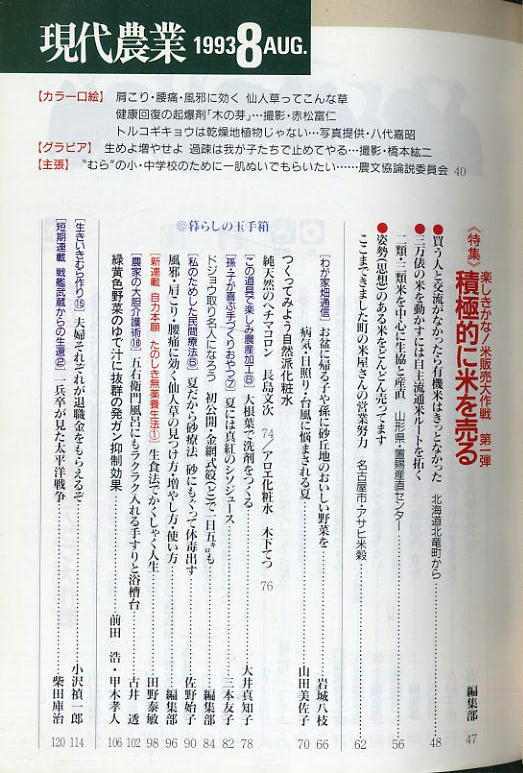 現代農業 1993 8 AUG.
【カラー口絵】 肩こり・腰痛・風邪に効く 仙人草ってこんな草
健康回復の起爆剤「木の芽」…撮影・赤松富仁
トルコギキョウは乾燥地植物じゃない…写真提供・八代嘉昭
【グラビア】 生めよ増やせよ 過疎は我が子たちで止めてやる…撮影・橋本紘二
【主張】 “むら”の小・中学校のために一肌ぬいでもらいたい……農文協論説委員会 40
《特集》 楽しきかな!米販売大作戦 第一弾
積極的に米を売る 編集部 47
●買う人と交流がなかったら有機米はきっとなかった 北海道北竜町から 48
●三万俵の米を動かすには自主流通米ルートを拓く
一類・二類米を中心に生協と産直 山形県・置賜産直センター 56
●姿勢(思想)のある米をどんどん売ってます
ここまできました町の米屋さんの営業努力 名古屋市・アサヒ米穀 62
◎暮らしの玉手箱
[わが家畑通信] お盆に帰る子や孫に砂丘地のおいしい野菜を 岩城八枝 66
病気・日照り・台風に悩まされる夏 山田美佐子 70
つくってみよう自然派化粧水
純天然のヘチマコロン 長島文次 74/アロエ化粧水 木下てつ 76
[この道具で楽しみ農産加工⑧] 大根葉で洗剤をつくる 大井真知子 78
[孫・子が喜ぶ手づくりおやつ⑦] 夏には真紅のシソジュース 三本友子 82
ドジョウ取り名人になろう 初公開・金網式殻(どで一日五㌔も 編集部 84
[私のためした民間療法⑥] 夏だから砂療法 砂にもぐって体毒出す 佐野始子 90
風邪・肩こり・腰痛に効く仙人草の見つけ方・増やし方・使い方 編集部 96
[新連載 自力本願 たのしき無薬養生法①] 生食法でかくしゃく人生 田野泰敏 98
[農家の大胆介護術⑱] 五右衛門風呂にもラクラク入れる手すりと浴槽台 古井 透 102
緑黄色野菜のゆで汁に抜群の発ガン抑制効果 前田 浩・甲木孝人 106
[生きいきむら作り⑮] 夫婦それぞれが退職金をもらえるぞ 小沢禎一郎 114
[短期連載 戦艦武蔵からの生還②] 一兵卒が見た太平洋戦争 柴田庫治 120